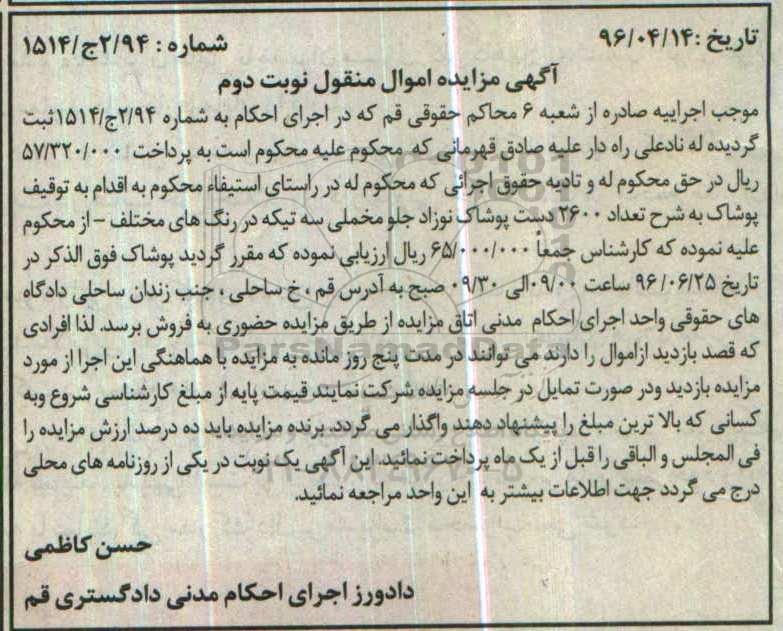 تاریخ :۹۶/۰۴/۱۴
شماره : ۲/۹۴ج/۱۵۱۴
آگهی مزایده اموال منقول نوبت دوم
موجب اجراییه صادره از شعبه ۶ محاکم حقوقی قم که در اجرای احکام به شماره ۲/۹۴ج/۱۵۱۴ثبت
گردیده له نادعلی راه دار علیه صادق قهرمانی که محکوم علیه محکوم است به پرداخت ۵۷/۳۲۰/۰۰۰
ریال در حق محکوم له و تادیه حقوق اجرائی که محکوم له در راستای استیفاء محکوم به اقدام به توقیف
پوشاک به شرح تعداد ۲۶۰۰ دست پوشاک نوزاد جلو مخملی سه تیکه در رنگ های مختلف – از محکوم
علیه نموده که کارشناس جمعاً ۶۵/۰۰۰/۰۰۰ ریال ارزیابی نموده که مقرر گردید پوشاک فوق الذکر در
تاریخ ۹۶/۰۶/۲۵ ساعت ۰۹/۰۰الی ۰۹/۳۰ صبح به آدرس قم ، خ ساحلی ، جنب زندان ساحلی دادگاه
های حقوقی واحد اجرای احکام مدنی اتاق مزایده از طریق مزایده حضوری به فروش برسد. لذا افرادی
که قصد بازدید ازاموال را دارند می توانند در مدت پنج روز مانده به مزایده با هماهنگی این اجرا از مورد
مزایده بازدید ودر صورت تمایل در جلسه مزایده شرکت نمایند قیمت پایه از مبلغ کارشناسی شروع وبه
کسانی که بالا ترین مبلغ را پیشنهاد دهند واگذار می گردد. برنده مزایده باید ده درصد ارزش مزایده را
فی المجلس و الباقی را قبل از یک ماه پرداخت نمائید. این آگهی یک نوبت در یکی از روزنامه های محلی
درج می گردد جهت اطلاعات بیشتر به این واحد مراجعه نمائید.
حسن کاظمی
دادورز اجرای احکام مدنی دادگستری قم
ParsNamadData